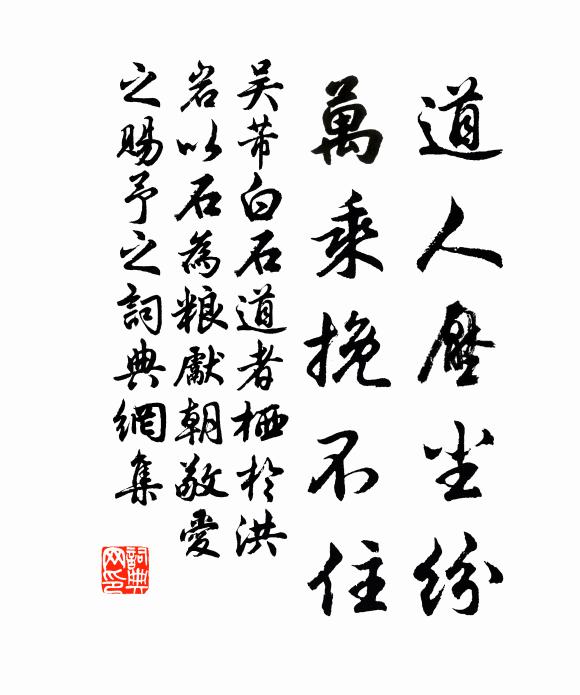 道人厭尘紛
萬乘挽不住
吴芾白石道者栖於洪
岩以石為粮獻朝敬愛
之賜予之詞典網集
詞典网印